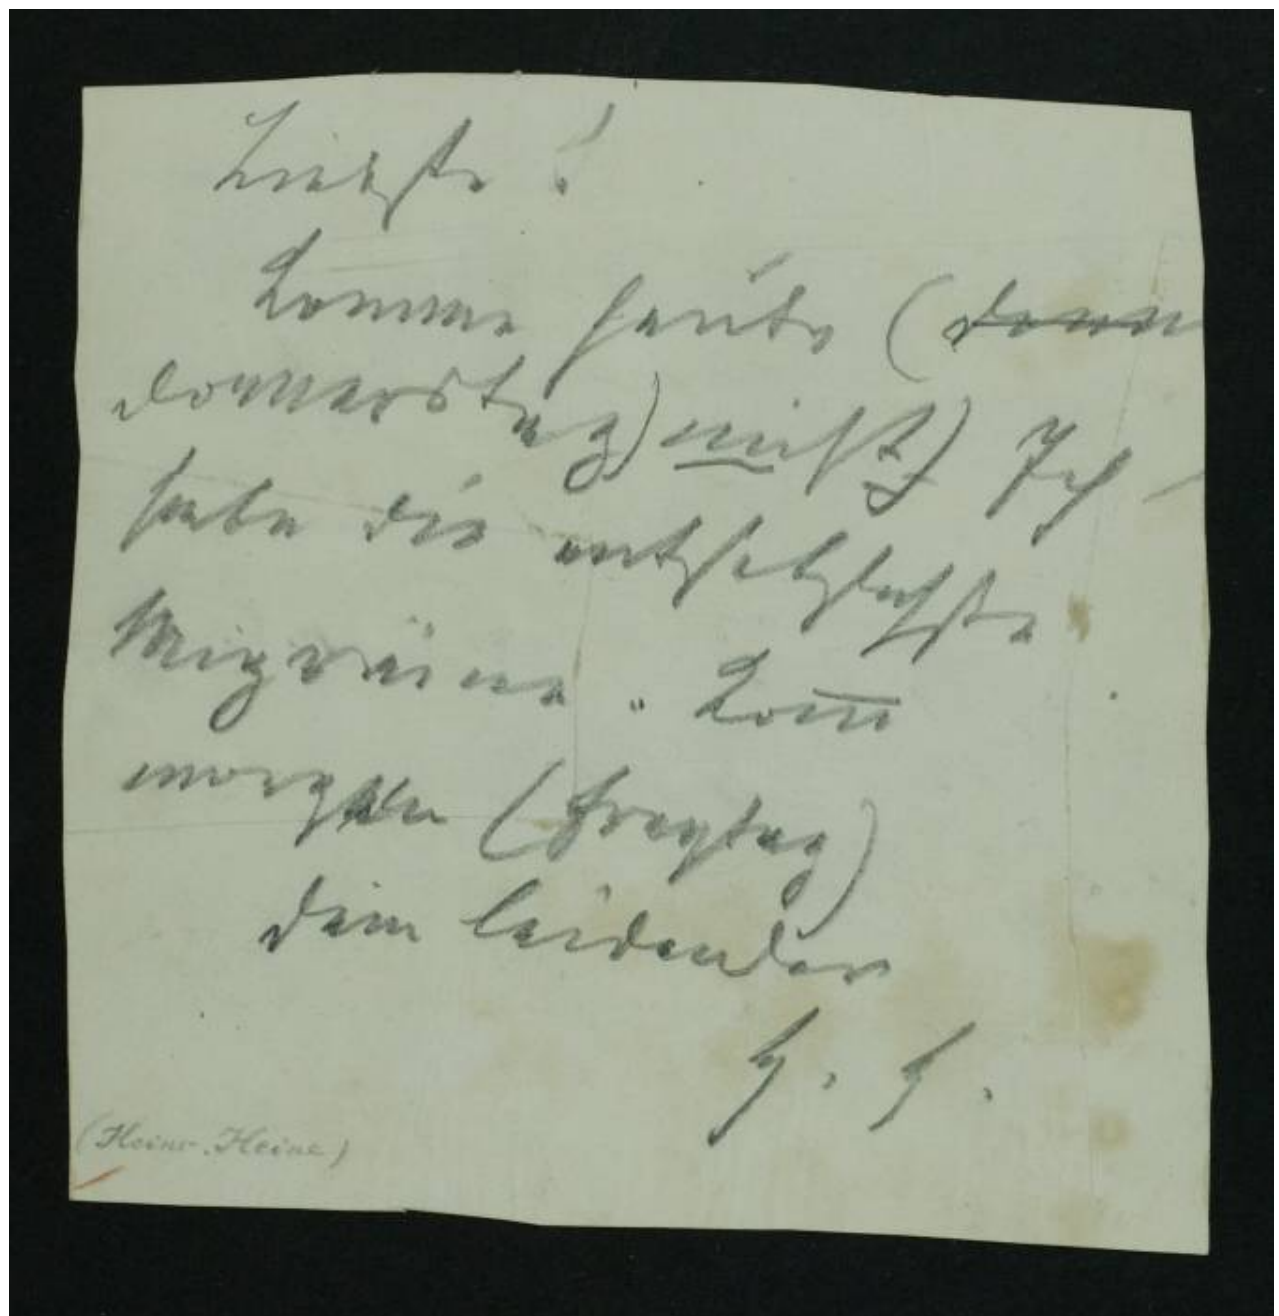 Liebste!
Komme heute (donn
donnerstag) nicht) Ich
habe die entsetzlichste
Migraine. Kom̅
morgen (Freytag)
Dein leidender
H. H.
(Heinr. Heine)